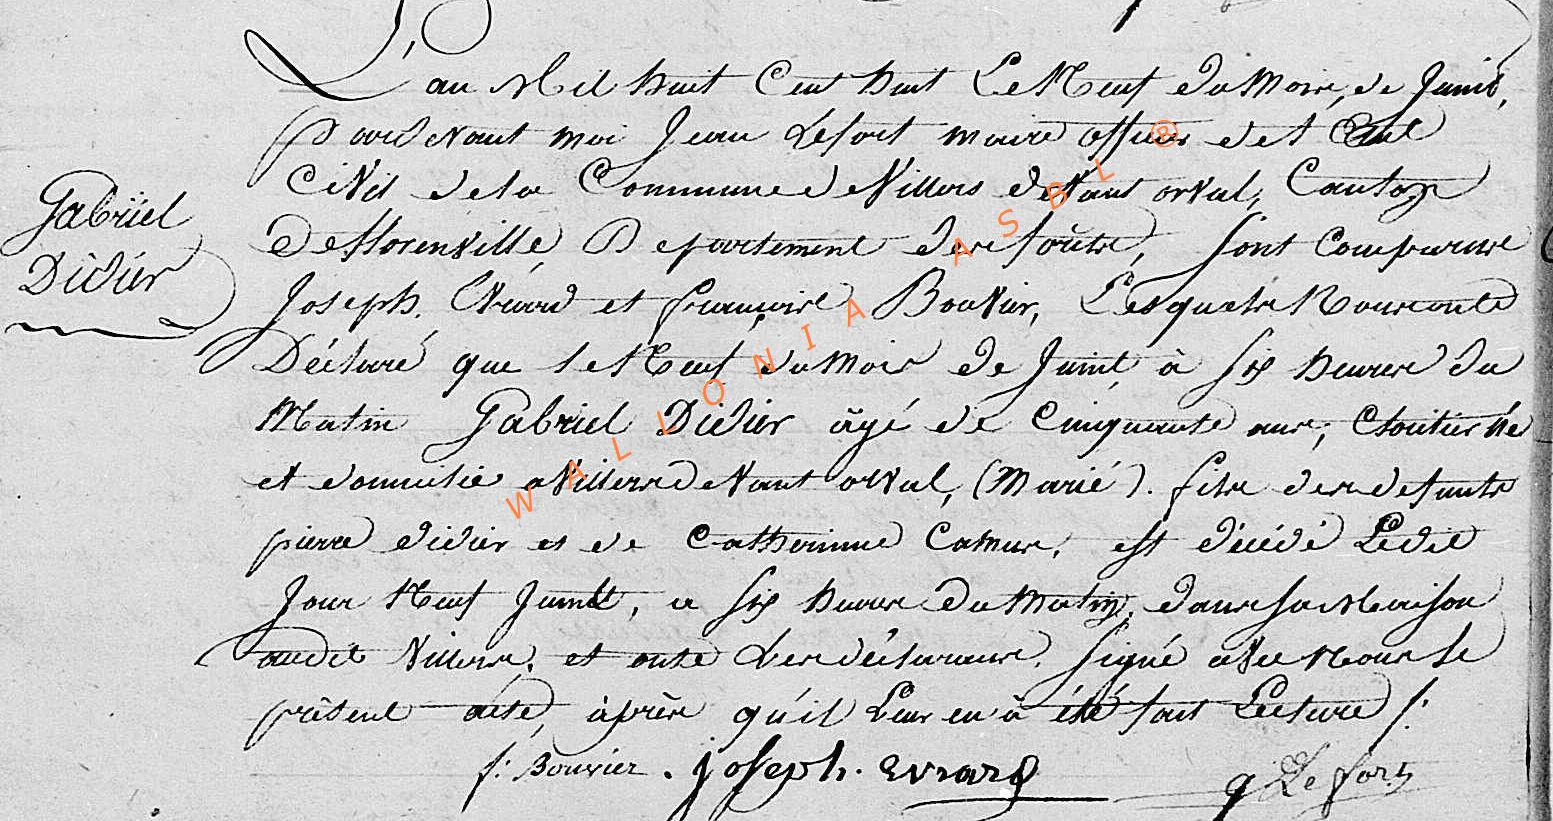 Gabriel
Didier
L'an Mil huit Cent huit Le Neuf du Mois, de Juint,
Pardevant moi Jean Lefort maire officier det Etat
Civil de la Commune de Villers devant orval, Canton
de florenville, Departement des forêts, sont Comparus
Joseph. Evrard et françoise Bouvier, Lesquels Nous onts
Déclaré que le Neuf du Mois de Juint, à six heures du
Matin Gabriel Didier âgé de Cinquante ans; Cloutier né
et domicilié a Villers devant orval, (Marié). fils des defunts
pierre didier et de Catherinne Camus. est décédé Ledit
Jour Neuf Juint, a six heures du Matin, dans sa Maison
audit Villers. et onts Les déclarans. signé avec Nous le
présent acte, àprès qu'il Leur en à été fait Lecture /.
f: Bouvier. joseph. evrard
Le fort
WALLONIA ASBL ®